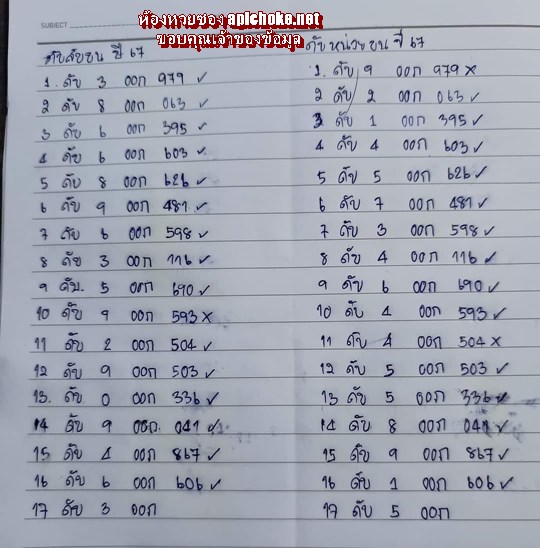 SUBJECT
ห้องหวยซอง apichoke.net
ขอบคุณเจ้าของข้อมูล
ดับสิบบน ปี 67
1. ดับ 3 ออก 979 ✓
2 ดับ 8 ออก 063 ✓
3 ดับ 6 ออก 395 ✓
4 ดับ 6 ออก 603 ✓
5 ดับ 8 ออก 626 ✓
6 ดับ 9 ออก 481 ✓
7 ดับ 6 ออก 598 ✓
8 ดับ 3 ออก 116 ✓
9 ดับ. 5 ออก 690 ✓
10 ดับ 9 ออก 593 ×
11 ดับ 2 ออก 504 ✓
12 ดับ 9 ออก 503 ✓
13. ดับ 0 ออก 336 ✓
14 ดับ 9 ออก. 041 ✓
15 ดับ 4 ออก 867 ✓
16 ดับ 6 ออก 606 ✓
17 ดับ 3 ออก
ดับหน่วยบน ปี 67
1. ดับ 9 ออก 979 ×
2 ดับ 2 ออก 063 ✓
3 ดับ 1 ออก 395 ✓
4 ดับ 4 ออก 603 ✓
5 ดับ 5 ออก 626 ✓
6 ดับ 7 ออก 481 ✓
7 ดับ 3 ออก 598 ✓
8 ดับ 4 ออก 116 ✓
9 ดับ 6 ออก 690 ✓
10 ดับ 4 ออก 593 ✓
11 ดับ 4 ออก 504 ×
12 ดับ 5 ออก 503 ✓
13 ดับ 5 ออก 336
14 ดับ 8 ออก 041 ✓
15 ดับ 9 ออก 867 ✓
16 ดับ 1 ออก 606 ✓
17 ดับ 5 ออก